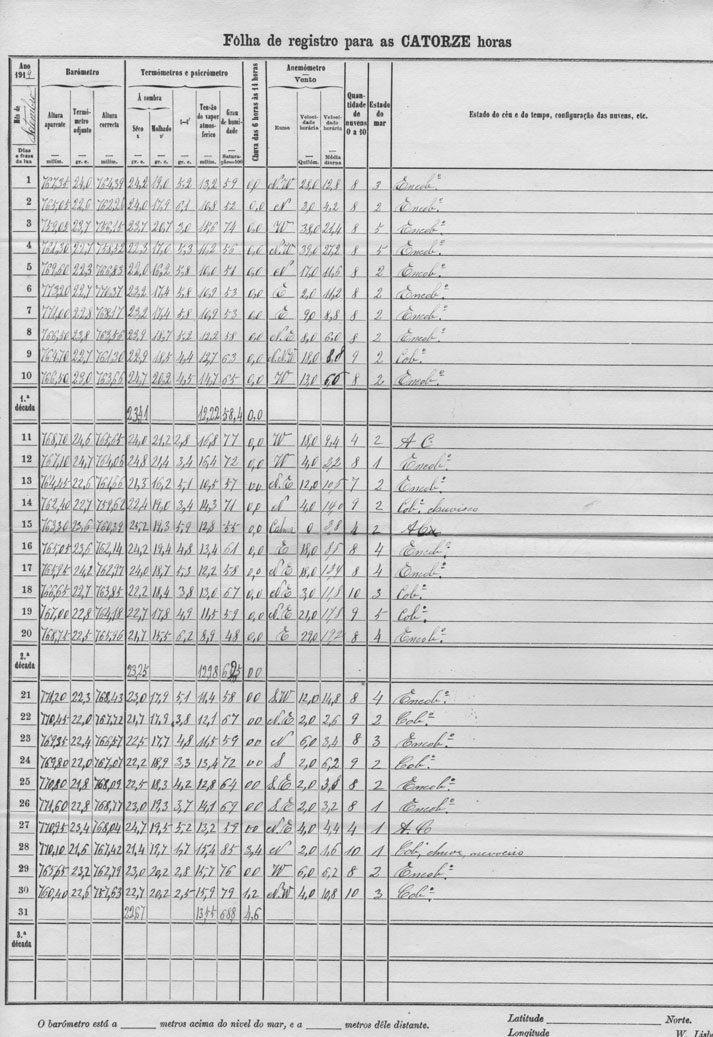 Fôlha de registro para as CATORZE horas
Ano 1919
Mês de Setembro
Dias e fases da lua
Barómetro
Altura aparente — milím.
Termómetro adjunto — gr. c.
Altura correcta — milím.
Termómetros e psicrómetro
À sombra
Sêco t gr. c.
Molhado t' gr. c.
t-t' gr. c.
Tensão do vapor atmosférico — milím.
Grau de humidade — Saturação=100
Chuva das 6 horas às 14 horas
Anemómetro — Vento
Rumo
Velocidade horária — Quilóm.
Velocidade horária — Média diurna
Quantidade de nuvens 0 a 10
Estado do mar
Estado do céu e do tempo, configuração das nuvens, etc.
1 24,0 764,39 24,2 19,0 5,2 13,2 59 0,0 N.W 28,0 12,8 8 3 Encob.º
2 765,05 22,0 24,0 17,9 52 0,0 N 2,0 4,2 8 2 Encob.º
3 23,7 23,7 20,7 3,0 74 0,0 W 38,0 21,4 8 5 Encob.º
4 761,30 22,7 22,3 17,0 5,3 11,2 56 0,0 N.W 39,0 27,2 8 5 Encob.º
5 22,3 766,83 22,0 16,2 5,8 51 0,0 N 17,0 11,6 8 2 Encob.º
6 773,20 22,7 770,37 17,4 5,8 53 0,0 E 2,0 11,2 8 2 Encob.º
7 771,00 22,8 23,2 17,4 5,8 53 0,0 E 9,0 8,8 8 2 Encob.º
8 23,8 763,56 23,9 18,7 5,2 58 0,0 N.E 8,0 6,0 8 2 Encob.º
9 764,70 22,7 22,9 18,5 4,4 12,7 63 0,0 N.NW 18,0 8,8 9 2 Cob.º
10 766,50 23,0 763,66 24,7 20,2 4,5 14,7 65 0,0 W 13,0 6,0 8 2 Encob.º
1.ª década 23,41 12,22 58,4 0,0
11 768,70 24,6 765,65 24,0 21,2 2,8 16,8 77 0,0 W 18,0 8,4 4 2 A C
12 767,10 24,7 764,06 24,8 21,4 3,4 16,4 72 0,0 W 4,0 2,2 8 1 Encob.º
13 764,45 22,6 761,66 21,3 16,2 5,1 10,5 57 0,0 N.E 12,0 10,6 7 2 Encob.º
14 762,40 22,7 759,62 22,4 19,0 3,4 14,3 71 0,0 N 4,0 14,0 9 2 Cob.º chuvisco
15 763,20 23,6 25,2 19,3 5,9 12,8 55 0,0 Calma 0 3,8 4 2
16 765,05 23,6 762,14 24,2 19,4 4,8 13,4 61 0,0 E 18,0 8,6 8 4 Encob.º
17 765,95 24,2 762,97 24,0 18,7 5,3 12,2 58 0,0 N.E 18,0 8 4 Encob.º
18 766,65 22,7 763,85 22,2 18,4 3,8 13,0 67 0,0 N.E 3,0 17,8 10 3 Cob.º
19 767,00 22,8 764,18 22,7 17,8 4,9 11,5 59 0,0 N.E 21,0 17,8 9 5 Cob.º
20 768,75 22,5 765,96 21,7 15,5 6,2 8,9 48 0,0 E 29,0 19,2 8 4 Encob.º
2.ª década 23,25 12,98 62,5 0,0
21 771,20 22,3 768,43 23,0 17,9 5,1 11,4 58 0,0 S.W 12,0 14,8 8 4 Encob.º
22 770,45 22,0 767,72 21,7 17,9 3,8 12,1 67 0,0 N.E 2,0 2,6 9 2 Cob.º
23 769,35 22,4 766,57 22,5 17,7 4,8 11,5 59 0,0 N 6,0 3,4 8 3 Encob.º
24 769,80 22,0 767,07 22,2 18,9 3,3 13,4 72 0,0 S 2,0 6,2 9 2 Cob.º
25 770,80 21,8 768,09 22,5 18,3 4,2 12,8 64 0,0 S.E 2,0 3,8 8 2 Encob.º
26 771,60 22,8 768,77 23,0 19,3 3,7 14,1 69 0,0 S.E 2,0 3,2 8 1 Encob.º
27 770,95 23,4 768,04 24,7 19,5 5,2 13,2 59 0,0 N.E 4,0 4,4 4 1 A.C
28 770,10 21,6 767,42 21,4 19,7 1,7 15,4 85 3,4 N 2,0 1,6 10 1 Cob.º, chuva, nevoeiro
29 765,65 23,2 762,79 23,0 20,2 2,8 15,7 76 0,0 W 6,0 6,2 8 2 Encob.º
30 760,40 22,6 757,63 22,7 20,2 2,5 15,9 79 1,2 N.W 4,0 10,8 10 3 Cob.º
31 22,67 13,55 68,8 4,6
3.ª década
O barómetro está a ______ metros acima do nivel do mar, e a ______ metros dêle distante.
Latitude ______ Norte.
Longitude W. Lisb